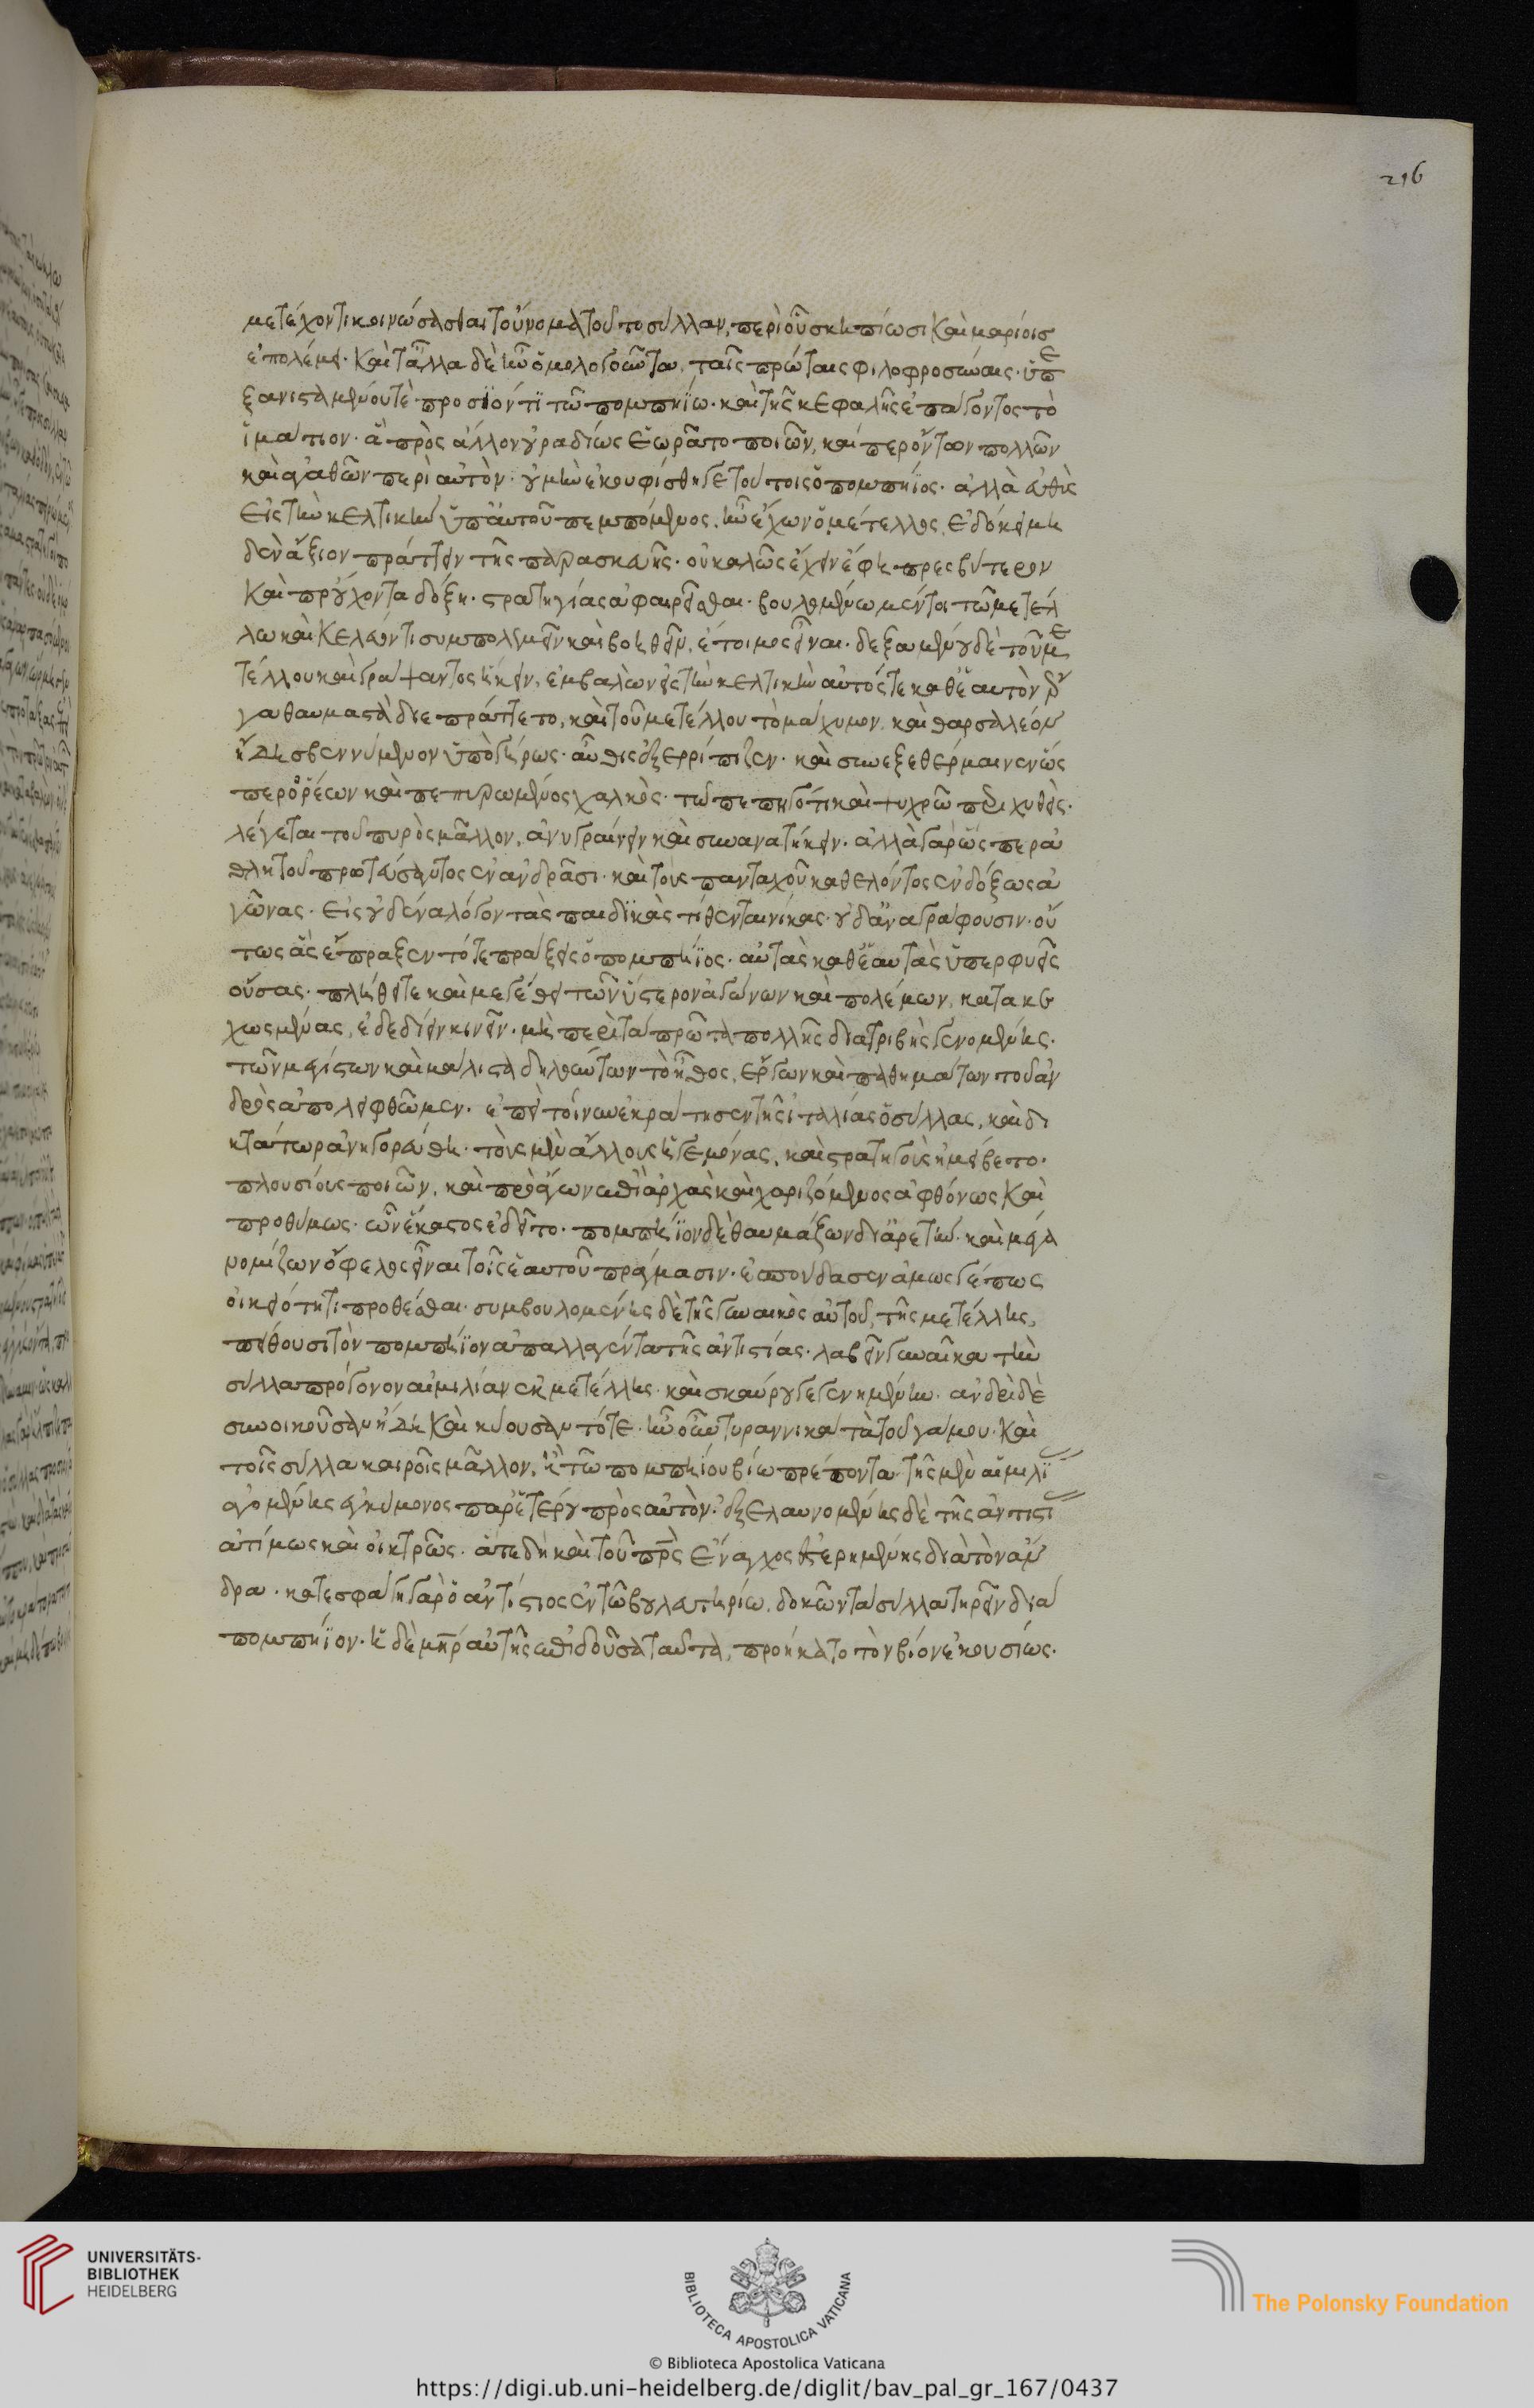 216
μετέχοντι κοινώσασθαι τοὔνομα τοῦτο σύλλαν, περὶ οὗ σκηπίωσι καὶ μαρίοις
ἐπολέμει. καὶ τἄλλα δὲ ἦν ὁμολογοῦντα, ταῖς πρώταις φιλοφροσύναις. ὑπε
ξανιστάμενός τὲ προσϊόντϊ τῶ πομπηΐω. καὶ τῆς κεφαλῆς ἐπάγοντος τὸ
ἱμάτιον. ἃ πρὸς ἄλλον οὐ ραδίως ἑωρᾶτο ποιῶν, καί περ ὄντων πολλῶν
καὶ ἀγαθῶν περὶ αὐτὸν. οὐ μὴν ἐκουφίσθη γε τούτοις ὁ πομπήϊος. ἀλλὰ εὐθὺς
εἰς τὴν κελτικὴν ὑπ' αὐτοῦ πεμπόμενος, ἣν ἔχων ὁ μέτελλος, ἐδόκει μη
δὲν ἄξιον πράττειν τῆς παρασκευῆς. οὐ καλῶς ἔχειν ἔφη πρεσβύτερον
καὶ προύχοντα δόξη. στρατηγίας ἀφαιρεῖσθαι. βουλομένω μέντοι τῶ μετέλ
λω καὶ κελεύοντι συμπολεμεῖν καὶ βοηθεῖν, ἕτοιμος εἶναι. δεξαμένου δὲ τοῦ με
τέλλου καὶ γράψαντος ἥκειν, ἐμβαλὼν εἰς τὴν κελτικὴν αὐτός τε καθ' ἑαυτὸν ἔρ
γα θαυμαστὰ διεπράττετο, καὶ τοῦ μετέλλου τὸ μάχιμον, καὶ θαρσαλέον
ἤδη σβεννύμενον ὑπὸ γήρως. αὖθις ἐξερρίπιζεν. καὶ συνεξεθέρμαινεν ὥς
περ ὁ ῥέων καὶ πεπυρωμένος χαλκὸς. τῶ πεπηγότι καὶ ψυχρῶ περιχυθεὶς.
λέγεται τοῦ πυρὸς μᾶλλον, ἀνυγραίνειν καὶ συνανατήκειν. ἀλλὰ γὰρ ὥς περ ἀ
θλητοῦ πρωτεύσαντος ἐν ἀνδράσι. καὶ τοὺς πανταχοῦ καθελόντος ἐνδόξως ἀ
γῶνας. εἰς οὐδένα λόγον τὰς παιδϊκὰς τίθενται νίκας. οὐδ' ἀναγράφουσιν. οὕ
τως ἃς ἔπραξεν τότε πράξεις ὁ πομπήϊος. αὐτὰς καθ' ἑαυτὰς ὑπερφυεῖς
οὔσας. πλήθει τε καὶ μεγέθει τῶν ὕστερον ἀγώνων καὶ πολέμων, κατακε
χωσμένας, ἐδεδίειν κινεῖν. μὴ περὶ τὰ πρῶτα πολλῆς διατριβῆς γενομένης.
τῶν μεγίστων καὶ μάλιστα δηλούντων τὸ ἦθος, ἔργων καὶ παθημάτων τοῦ ἀν
δρὸς ἀπολειφθῶμεν. ἐπεὶ τοίνυν ἐκράτησεν τῆς ἰταλίας ὁ σύλλας, καὶ δι
κτάτωρ ἀνηγορεύθη. τοὺς μὲν ἄλλους ἡγεμόνας, καὶ στρατηγοὺς ἠμείβετο.
πλουσίους ποιῶν, καὶ προάγων ἐπὶ ἀρχὰς καὶ χαριζόμενος ἀφθόνως καὶ
προθύμως. ὧν ἕκαστος ἐδεῖτο. πομπήϊον δὲ θαυμάζων δι' ἀρετὴν. καὶ μέγα
νομίζων ὄφελος εἶναι τοῖς ἑαυτοῦ πράγμασιν. ἐσπούδασεν ἁμως γέ πως
οἰκειότητι προθέσθαι. συμβουλομένης δὲ τῆς γυναικὸς αὐτοῦ, τῆς μετέλλης,
πείθουσι τὸν πομπήϊον ἀπαλλαγέντα τῆς ἀντιστίας. λαβεῖν γυναῖκα τὴν
σύλλα πρόγονον αἰμιλίαν ἐκ μετέλλης. καὶ σκαύρου γεγενημένην. ἀνδρὶ δὲ
συνοικοῦσαν ἤδη καὶ κύουσαν τότε. ἦν οὖν τυραννικὰ τὰ τοῦ γάμου. καὶ
τοῖς σύλλα καιροῖς μᾶλλον, ἢ τῶ πομπηίου βίω πρέποντα. τῆς μὲν αἰμιλϊ
ἀγομένης ἐγκύμονος παρ' ἑτέρου πρὸς αὐτὸν. ἐξελαυνομένης δὲ τῆς ἀντιστϊ
ἀτίμως καὶ οἰκτρῶς. ἅτε δὴ καὶ τοῦ πρς ἔναγχος ἐστερημένης διὰ τὸν ἄν
δρα. κατεσφάγη γὰρ ὁ ἀντίστιος ἐν τῶ βουλευτηρίω, δοκῶν τὰ σύλλα τηρεῖν διὰ
πομπήϊον. ἡ δὲ μηρ αὐτῆς ἐπιδοῦσα ταῦτα, προήκατο τὸν βίον ἑκουσίως.
UNIVERSITÄTS-
BIBLIOTHEK
HEIDELBERG
BIBLIOTECA APOSTOLICA VATICANA
The Polonsky Foundation
© Biblioteca Apostolica Vaticana
https://digi.ub.uni-heidelberg.de/diglit/bav_pal_gr_167/0437